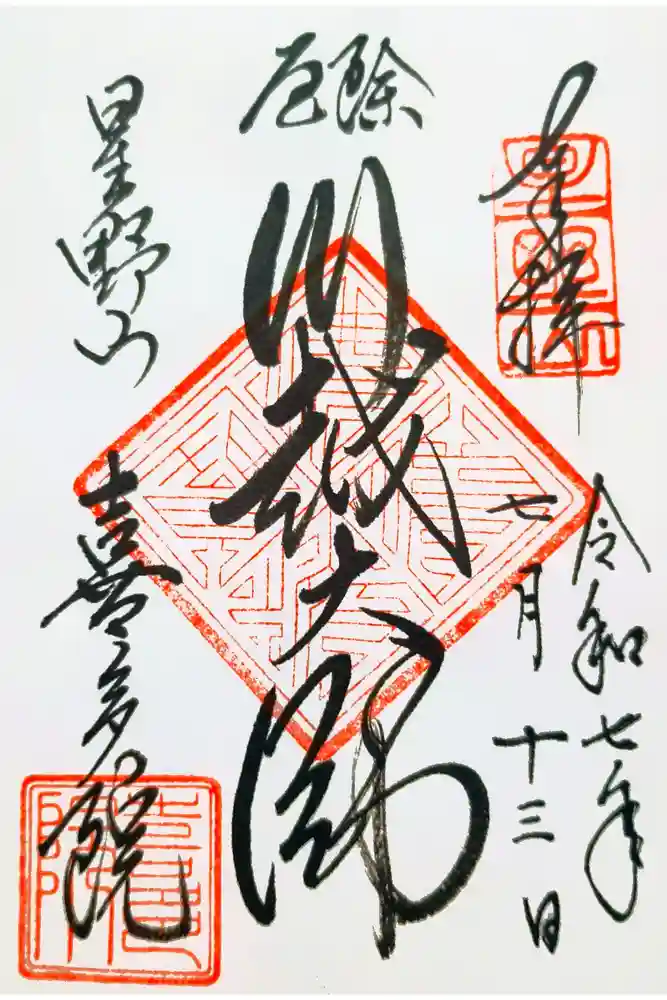 奉拝
令和七年
七月十三日
除厄
川越大師
星野山
喜多院